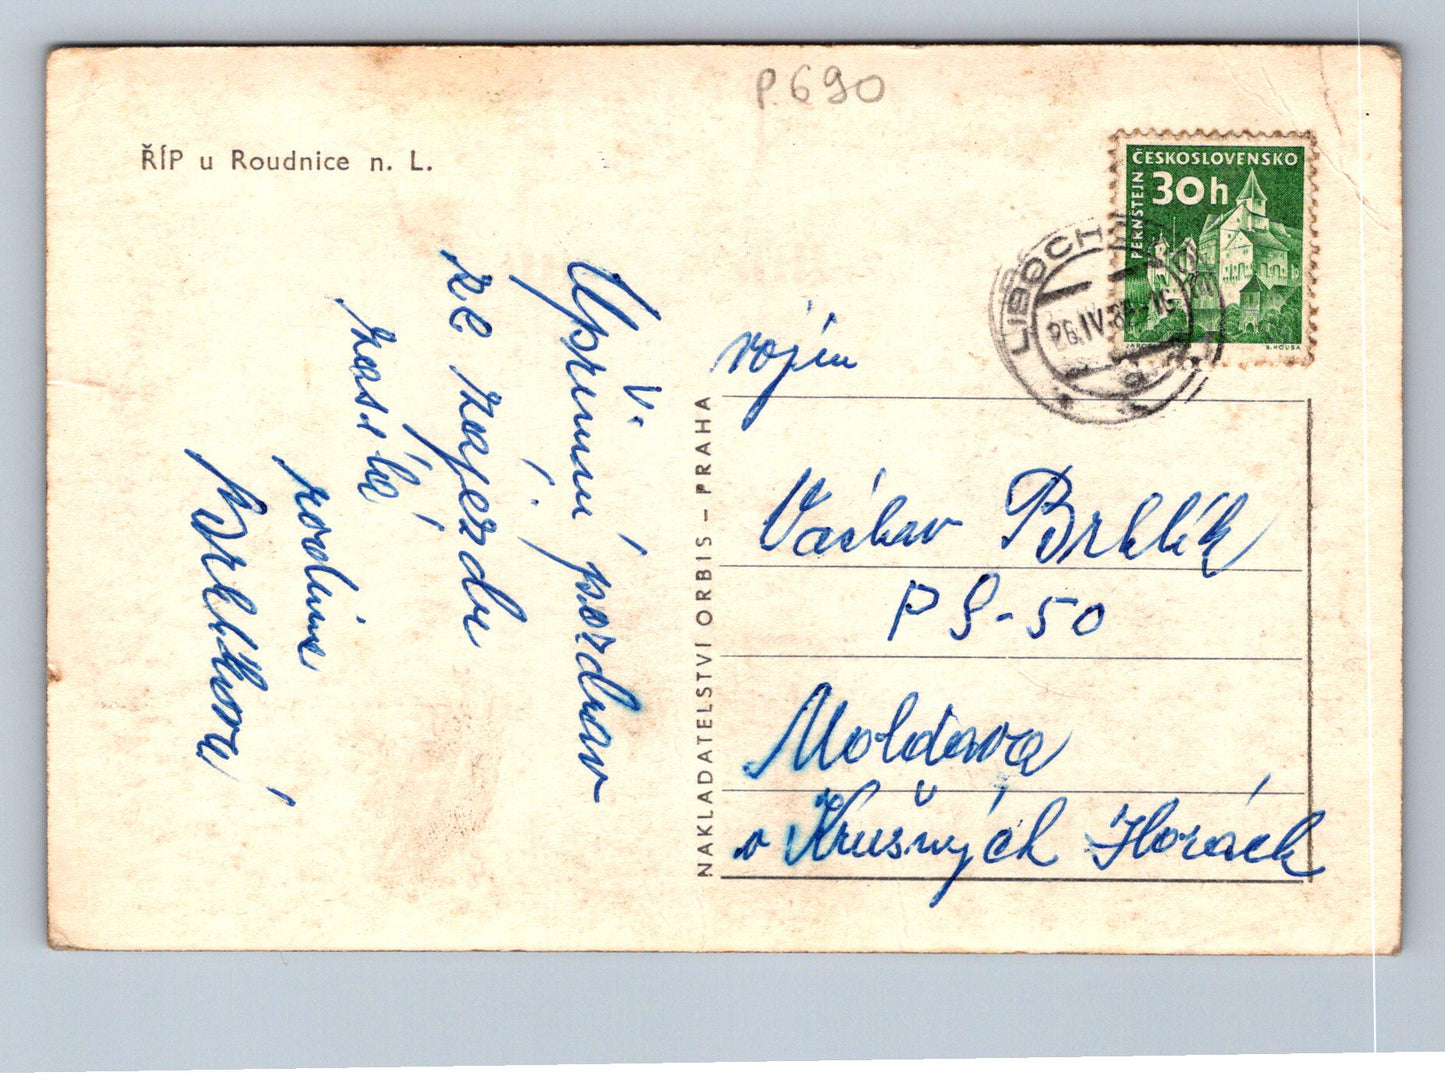 P.690
ŘÍP u Roudnice n. L.
ČESKOSLOVENSKO
PERNŠTEJN
30h
B. HOUSA
LIBOCH
26.IV.
Upřímný pozdrav
ze zájezdu
zasílá
rodina
Brhlíková
NAKLADATELSTVÍ ORBIS – PRAHA
vojín
Václav Brhlík
PS-50
Moldava
v Krušných Horách